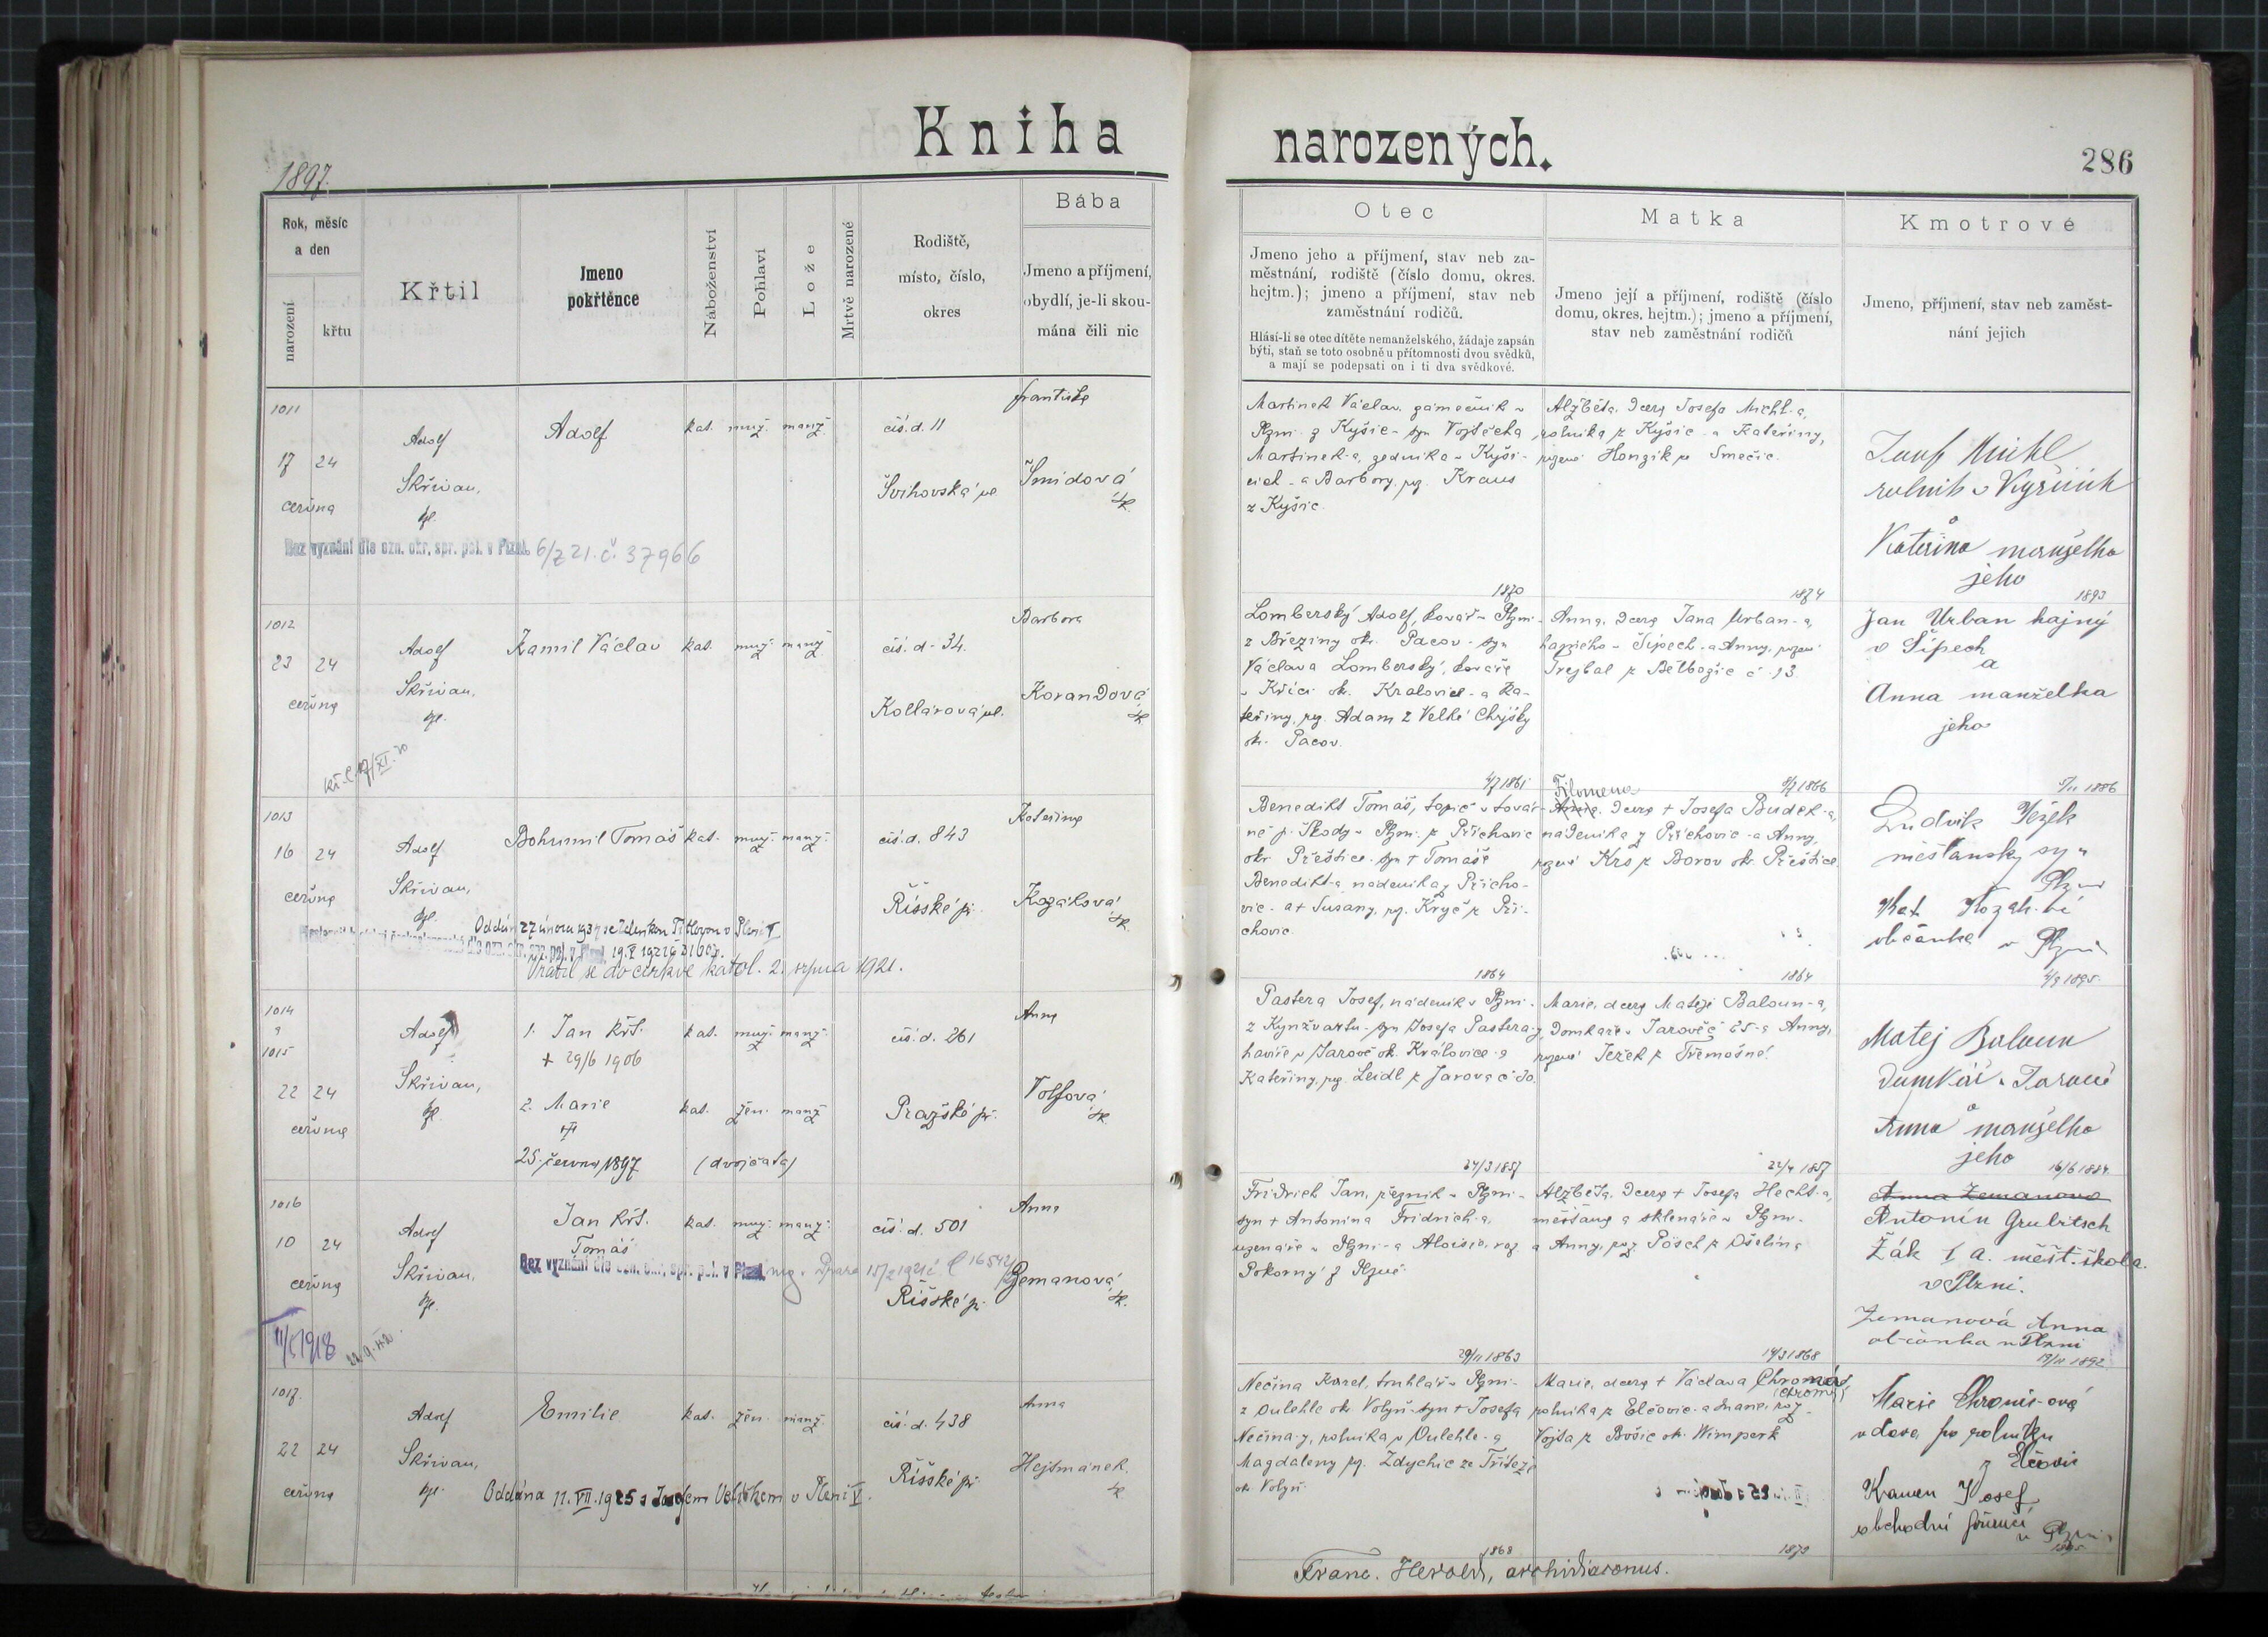 Kniha
narozených.
1897.
286
Rok, měsíc
a den
narození
křtu
Křtil
Jmeno
pokřtěnce
Náboženství
Pohlaví
Lože
Mrtvě narozené
Rodiště,
místo, číslo,
okres
Bába
Jmeno a příjmení,
obydlí, je-li skou-
mána čili nic
Otec
Jmeno jeho a příjmení, stav neb za-
městnání, rodiště (číslo domu, okres.
hejtm.); jmeno a příjmení, stav neb
zaměstnání rodičů.
Hlásí-li se otec dítěte nemanželského, žádaje zapsán
býti, staň se toto osobně u přítomnosti dvou svědků,
a mají se podepsati on i ti dva svědkové.
Matka
Jmeno její a příjmení, rodiště (číslo
domu, okres. hejtm.); jmeno a příjmení,
stav neb zaměstnání rodičů
Kmotrové
Jmeno, příjmení, stav neb zaměst-
nání jejich
1011
17 24
června
Adolf
Skřivan,
Adolf
kat. muž. manž.
čís. d. 11
Švihovská ul.
Františka
Šmídová
Bez vyznání dle ozn. okr. spr. pol. v Plzni. 6/7 21. č. 37966
Martinek Václav, zámečník v
Plzni z Kyšic - syn Vojtěcha
Martinek-a, zedníka v Kyši-
cích - a Barbory, roz. Kraus
z Kyšic.
1870
Alžběta, dcera Josefa Michl-a,
rolníka z Kyšic - a Kateřiny,
rozené Honzík ze Smečic.
1874
Josef Michl
rolník v Kyšicích
a
Kateřina manželka
jeho
1893
1012
23 24
června
Adolf
Skřivan,
Kamil Václav
kat. muž. manž.
čís. d. 34.
Kollárova ul.
Barbora
Korandová
Lomberský Adolf, kovář v Plzni
z Březiny ok. Pacov - syn
Václava Lomberský, kováře
v Kříci ok. Kralovice - a Ka-
teřiny, roz. Adam z Velké Chyšky
ok. Pacov.
4/7 1861
Anna, dcera Jana Urban-a,
hajného v Šípech - a Anny, rozené
Trejbal z Bělbožic č. 13.
8/7 1866
Jan Urban hajný
v Šípech
a
Anna manželka
jeho
5/11 1886
1013
16 24
června
Adolf
Skřivan,
Bohumil Tomáš
kat. muž. manž.
čís. d. 843
Říšské př.
Kateřina
Kozáková
Vrátil se do církve katol. 2. srpna 1921.
Benedikt Tomáš, topič v továr-
ně p. Škody v Plzni z Příchovic
okr. Přeštice - syn + Tomáše
Benedikt-a nádeníka z Přícho-
vic - a + Susany, roz. Kryč z Pří-
chovic.
1864
Filomena
dcera + Josefa Budek-a,
nádeníka z Příchovic - a Anny,
rozené Krs z Borov ok. Přeštice.
1864
Ludvík Ježek
měšťanský syn
Plzni
občanka v Plzni
4/9 1895.
1014
a
1015
22 24
června
Adolf
Skřivan,
1. Jan Křt.
+ 29/6 1906
2. Marie
25. června 1897
kat. muž. manž.
kat. žen. manž.
(dvojčata)
čís. d. 261
Pražské př.
Anna
Volfová
Pastera Josef, nádeník v Plzni
z Kynžvartu - syn Josefa Pastera-y,
havíře v Jarově ok. Kralovice - a
Kateřiny, roz. Leidl z Jarova č. 30.
24/3 1857
Marie, dcera Matěje Baloun-a,
domkáře v Jarově č. 25 - a Anny,
rozené Ježek z Třemošné.
22/4 1857
Matej Baloun
Domkář v Jarově
a
Anna manželka
jeho
16/6 1884.
1016
10 24
června
11/5 1918
Adolf
Skřivan,
Jan Křt.
Tomáš
kat. muž. manž.
čís. d. 501
Říšské př.
Anna
Zemanová
Bez vyznání dle ozn. okr. spr. pol. v Plzni
Fridrich Jan, řezník v Plzni -
syn + Antonína Fridrich-a,
uzenáře v Plzni - a Aloisie, roz.
Pokorný z Plzně.
29/11 1863
Alžběta, dcera + Josefa Hecht-a,
měšťana a sklenáře v Plzni -
a Anny, roz. Pösch z Ošelína
14/3 1868
Anna Zemanová
Antonín Grubitsch
Žák I a. měšť. škola.
v Plzni.
Zemanová Anna
občanka v Plzni
19/11 1892
1017.
22 24
června
Adolf
Skřivan,
Emilie
kat. žen. manž.
čís. d. 438
Říšské př.
Anna
Hejtmánek.
Oddána 11. VII. 1925 s Josefem Velíškem v Plzni V.
Nečina Karel, truhlář v Plzni -
z Oulehle ok. Volyň - syn + Josefa
Nečina-y, rolníka v Oulehle - a
Magdaleny roz. Zdychic ze Třítezí
ok. Volyň.
1868
Marie, dcera + Václava Chromás,
(Chromý)
rolníka z Elčovic - a Marie, roz.
Vojta z Bošic ok. Wimperk
1873
vdova po rolníku
z Elčovic
Josef
obchodní příručí
v Plzni
Franc. Herold, archidiaconus.